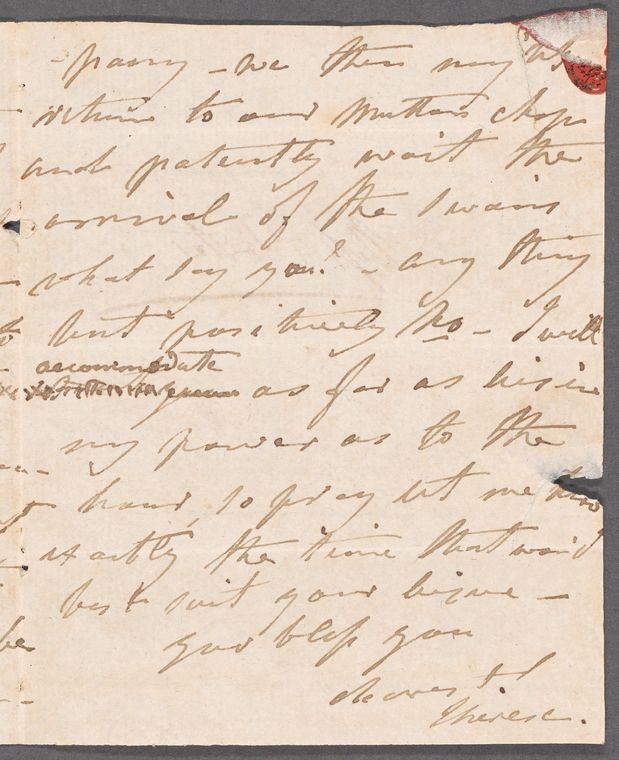 pany – we then my
return to our Mutton chop
and patiently wait the
arrival of the Swains
what say you? – any thing
but positively No – I will
accommodate
you as far as lies in
my power as to the
hour, so pray let me know
exactly the time that wou'd
best suit your
god bless you
dearest
Therese.